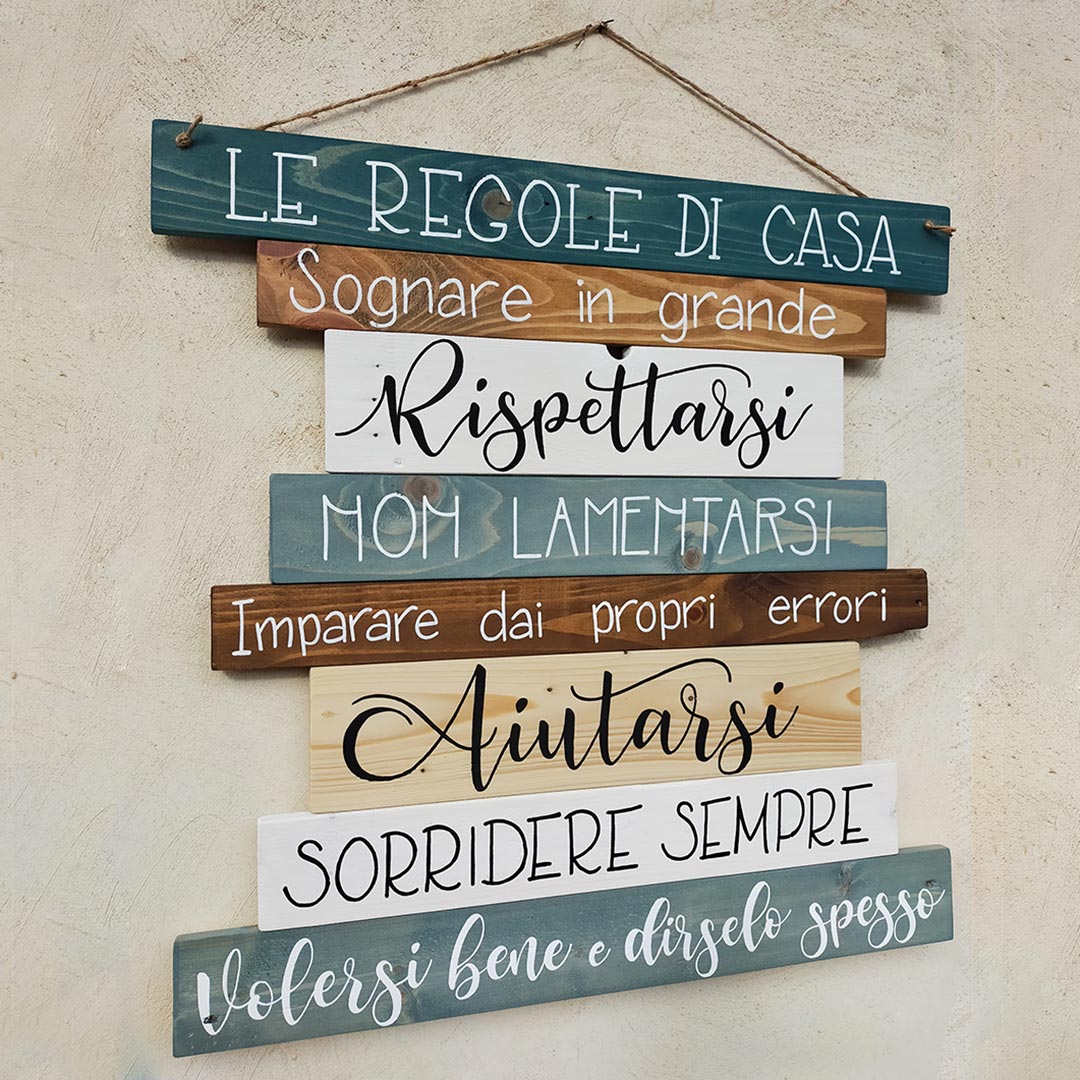 LE REGOLE DI CASA
Sognare in grande
Rispettarsi
NON LAMENTARSI
Imparare dai propri errori
Aiutarsi
SORRIDERE SEMPRE
Volersi bene e dirselo spesso